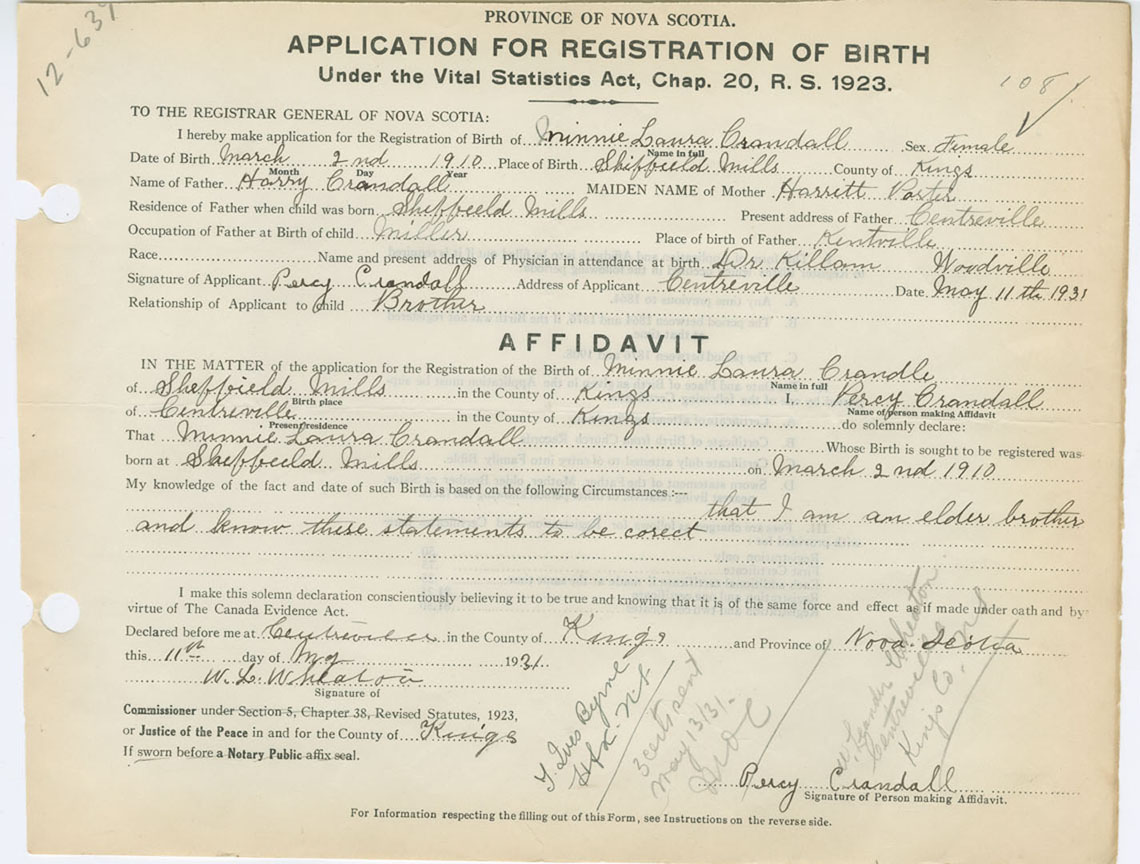 12-639
PROVINCE OF NOVA SCOTIA.
APPLICATION FOR REGISTRATION OF BIRTH
Under the Vital Statistics Act, Chap. 20, R. S. 1923.
108
TO THE REGISTRAR GENERAL OF NOVA SCOTIA:
I hereby make application for the Registration of Birth of Minnie Laura Crandall Sex Female
Name in full
Date of Birth March 2nd 1910 Place of Birth Sheffield Mills County of Kings
Month Day Year
Name of Father Harry Crandall MAIDEN NAME of Mother Harritt Porter
Residence of Father when child was born Sheffield Mills Present address of Father Centreville
Occupation of Father at Birth of child Miller Place of birth of Father Kentville
Race Name and present address of Physician in attendance at birth Dr Killam Woodville
Signature of Applicant Percy Crandall Address of Applicant Centreville Date May 11th 1931
Relationship of Applicant to child Brother
AFFIDAVIT
IN THE MATTER of the application for the Registration of the Birth of Minnie Laura Crandle
Name in full
of Sheffield Mills in the County of Kings I, Percy Crandall
Birth place Name of person making Affidavit
of Centreville in the County of Kings do solemnly declare:
Present residence
That Minnie Laura Crandall Whose Birth is sought to be registered was
born at Sheffield Mills on March 2nd 1910
My knowledge of the fact and date of such Birth is based on the following Circumstances :---
that I am an elder brother
and know these statements to be corect
I make this solemn declaration conscientiously believing it to be true and knowing that it is of the same force and effect as if made under oath and by
virtue of The Canada Evidence Act.
Declared before me at Centreville in the County of Kings and Province of Nova Scotia
this 11th day of May 1931
W. L. Wheaton
Signature of
Commissioner under Section 5, Chapter 38, Revised Statutes, 1923,
or Justice of the Peace in and for the County of Kings
If sworn before a Notary Public affix seal.
T. Ives Byrne
Hfx. N.S.
3 certs sent
May 13/31.
W. Leander Wheaton
Centreville
Kings Co. N.S.
Percy Crandall
Signature of Person making Affidavit.
For Information respecting the filling out of this Form, see Instructions on the reverse side.